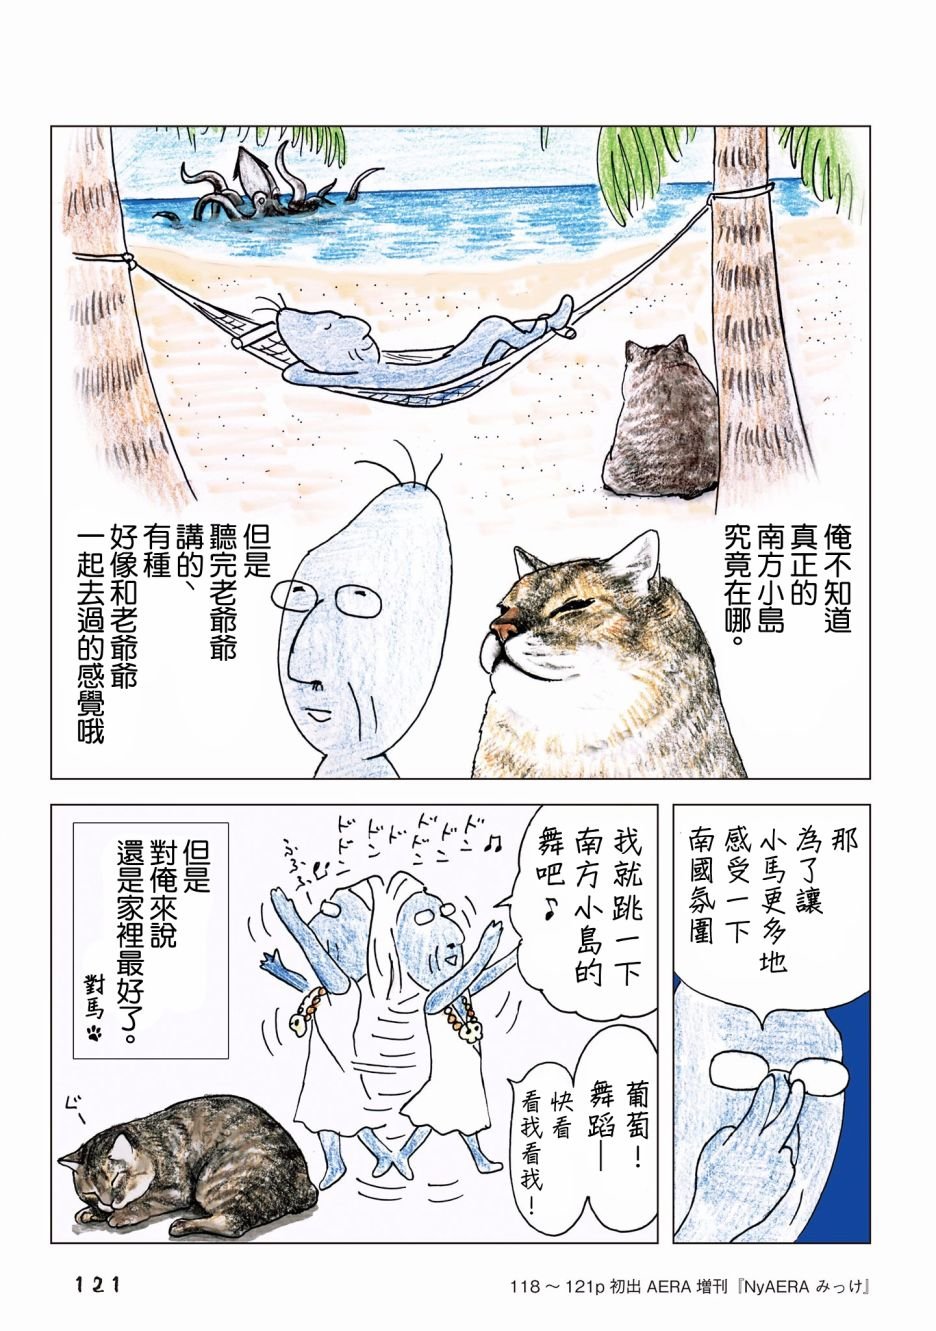 俺不知道
真正的
南方小島
究竟在哪。
但是
聽完老爺爺
講的、
有種
好像和老爺爺
一起去過的感覺哦
那
為了讓
小馬更多地
感受一下
南國氛圍
我就跳一下
南方小島的
舞吧♪
葡萄！
舞蹈——
快看
看我看我！
ドンドン
ドンドン
ドンドン
ドン
♪
ふふふふ♪
但是
對俺來說
還是家裡最好了。
對馬
121
118～121p 初出 AERA 増刊『NyAERA みっけ』